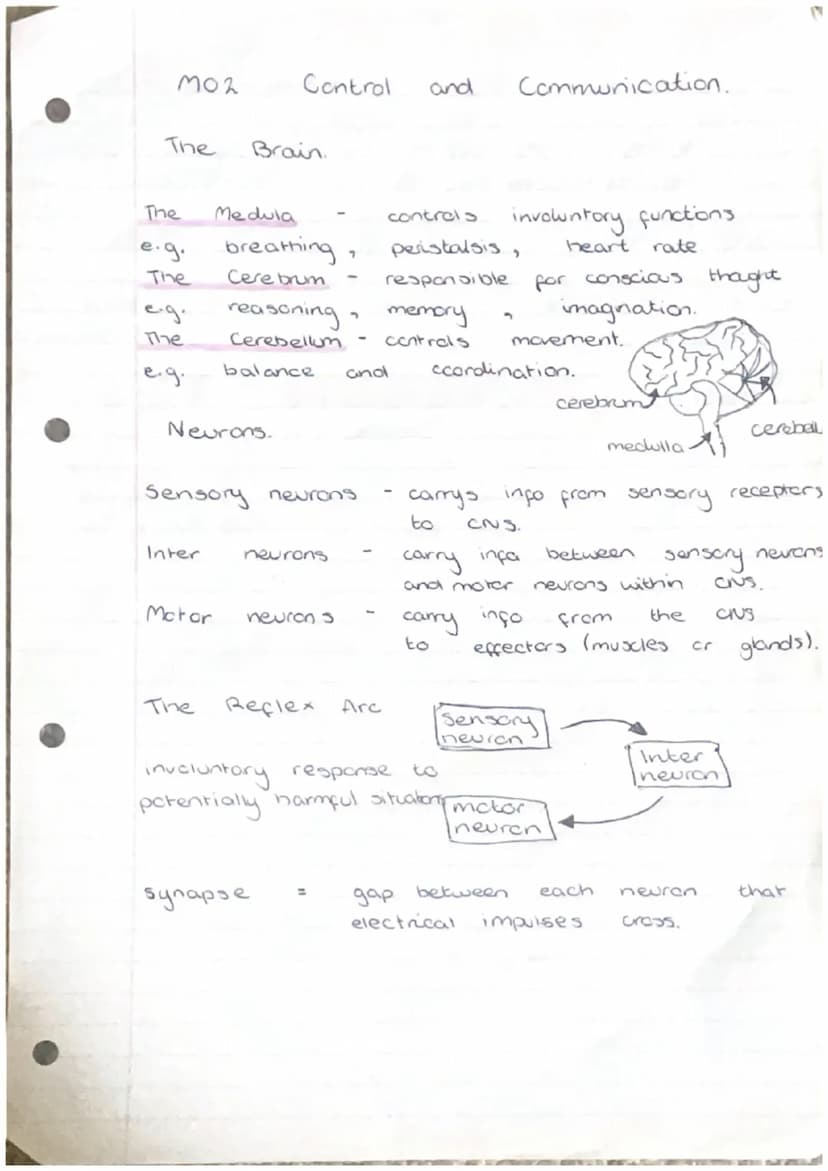 MO2 Control and Communication.
The Brain.
The Medula - controls involuntory functions
e.g. breathing, peristalsis, heart rate
The Cerebrum - responsible for conscious thought
e.g. reasoning, memory, imagnation.
The Cerebellum - controls movement.
e.g. balance and coordination.
cerebrum
cerebell
medulla
Neurons.
Sensory neurons - carrys info from sensory receptors
to CNS.
Inter neurons - carry info between sensory neurons
and motor neurons within CNS.
Motor neurons - carry info from the CNS
to effectors (muscles or glands).
The Reflex Arc
Sensory
neuron
Inter
neuron
involuntory response to
potentially harmful situations
motor
neuron
Synapse = gap between each neuron that
electrical impulses cross.